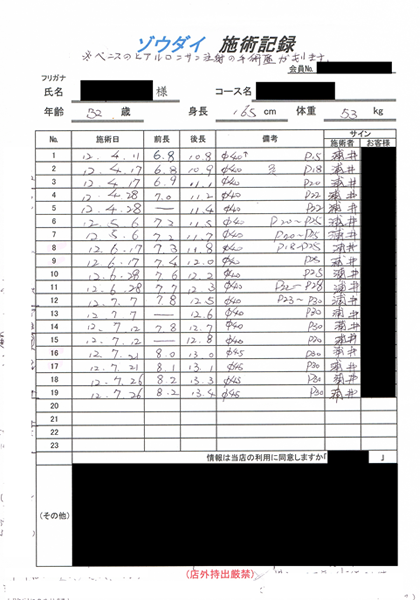 ゾウダイ 施術記録
※ペニスのヒアルロンサン注射の手術歴があります。
会員No.
フリガナ
氏名 様 コース名
年齢 32 歳 身長 165 cm 体重 53 kg
No. 施術日 前長 後長 備考 サイン
施術者 お客様
1 12.4.11 6.8 10.8 φ40 P15
2 12.4.17 6.8 10.9 φ40 P18
3 12.4.17 6.9 11.1 φ40 P20
4 12.4.28 7.0 11.2 φ40 P22
5 12.4.28 — 11.4 φ40 P22
6 12.5.6 7.2 11.5 φ40 P20~P25
7 12.5.6 11.7 φ40 P20~P25
8 12.6.17 7.3 11.8 φ40 P18~P25
9 12.6.17 7.4 12.0 φ40 P25
10 12.6.28 7.6 12.2 φ40 P25
11 12.6.28 7.7 12.3 φ40 P22~P28
12 12.7.7 7.8 12.5 φ40 P23~P30
13 12.7.7 — 12.6 φ40 P30
14 12.7.12 7.8 12.7 φ40 P30
15 12.7.12 — 12.8 φ40 P30
16 12.7.21 8.0 13.0 φ45 P30
17 12.7.21 8.1 13.1 φ45 P30
18 12.7.26 8.2 13.3 φ45 P30
19 12.7.26 8.2 13.4 φ45 P30
20
21
22
23
情報は当店の利用に同意しますか「 」
(その他)
(店外持出厳禁)